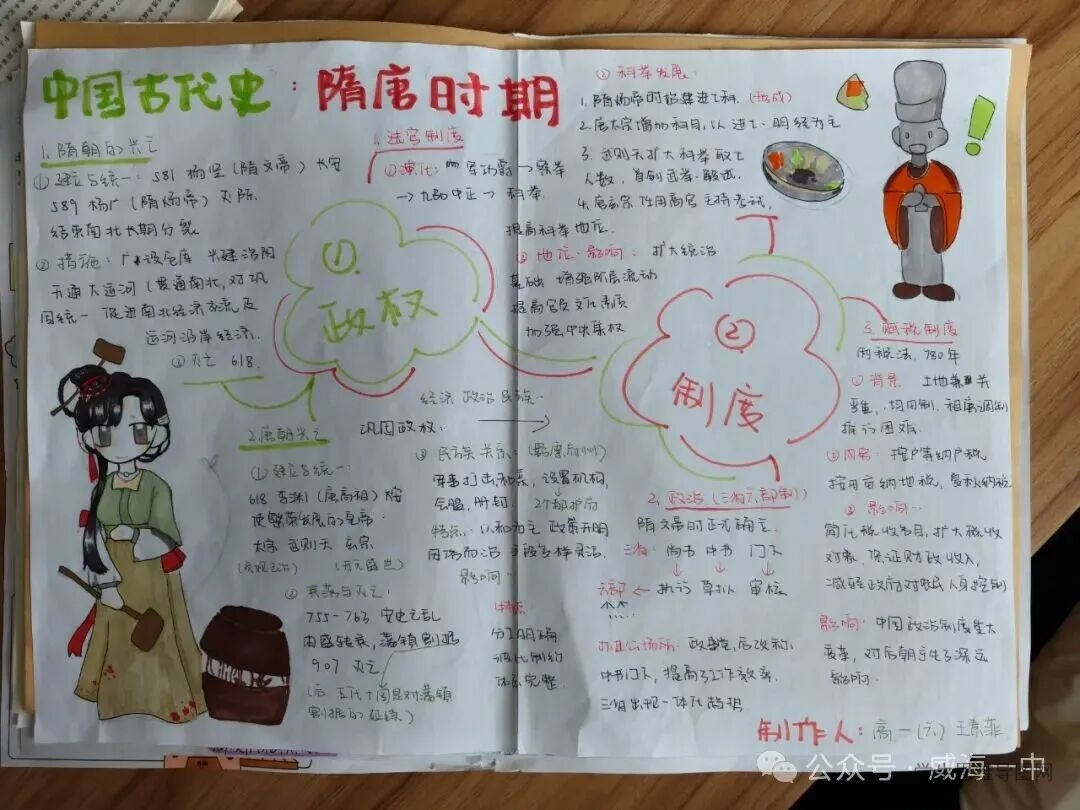 中国古代史：隋唐时期
1.隋朝的兴亡
①建立与统一：581 杨坚(隋文帝)长安
589 杨广(隋炀帝)灭陈
结束南北长期分裂
②措施：广设仓库 兴建洛阳
开通大运河(贯通南北,对巩
固统一 促进南北经济交流及
运河沿岸经济.
③灭亡 618.
①政权
2.唐朝兴亡
①建立与统一：
618 李渊(唐高祖)长安
使繁荣发展的皇帝
太宗 武则天 玄宗
(贞观之治) (开元盛世)
②衰落与灭亡：
755-763 安史之乱
由盛转衰,藩镇割据
907 灭亡
(后 五代十国是对藩镇
割据的延续)
经济 政治 民族…
巩固政权：
③民族关系：(羁縻府州)
军事打击和亲,设置机构,
会盟,册封 2个都护府
特点：以和为主 政策开明
因俗而治 手段多样灵活.
影响…
1.选官制度
①演化：军功爵→察举
→九品中正→科举.
②科举发展：
1.隋炀帝时始建进士科.(形成)
2.唐太宗增加科目,以进士·明经为主
3.武则天扩大科举取士
人数,首创武举·殿试.
4.唐玄宗任用高官主持考试,
提高科举地位.
③地位·影响：扩大统治
基础 增强阶层流动
提高官员文化素质
加强中央集权
②制度
2.政治(三省六部制)
隋文帝时正式确立.
三省：尚书 中书 门下
六部←执行 草拟 审核
特点
分工明确
彼此制约
体系完整.
办公场所：政事堂,后改称,
中书门下,提高了工作效率.
三省出现一体化趋势
3.赋税制度
两税法,780年
①背景 土地兼并关
严重,均田制、租庸调制
推行困难.
②内容：按户等纳户税
按田亩纳地税,夏秋纳税
③影响…
简化税收名目,扩大税收
对象,保证财政收入,
减轻政府对农民人身控制
影响：中国政治制度重大
变革,对后朝产生了深远
影响.
制作人：高一(六)王
公众号·威海一中